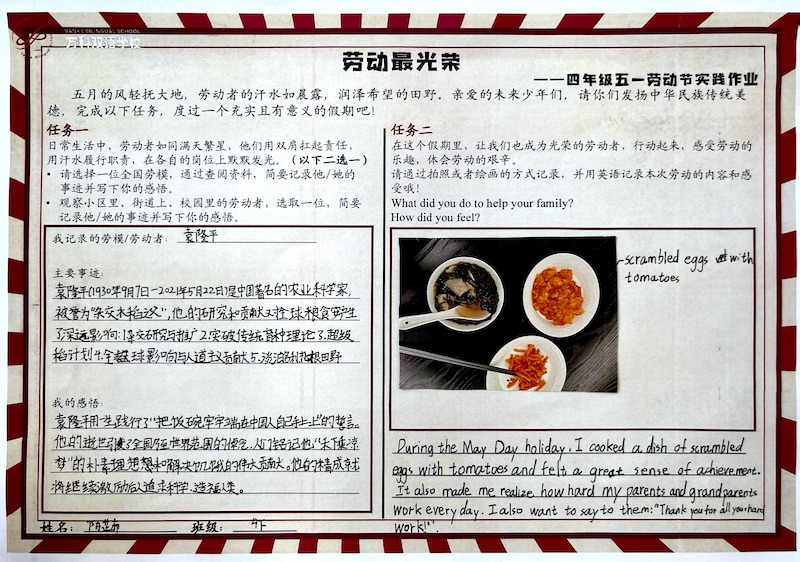 VANKE BILINGUAL SCHOOL
万科双语学校
劳动最光荣
——四年级五一劳动节实践作业
五月的风轻抚大地，劳动者的汗水如晨露，润泽希望的田野。亲爱的未来少年们，请你们发扬中华民族传统美
德，完成以下任务，度过一个充实且有意义的假期吧！
任务一
日常生活中，劳动者如同满天繁星，他们用双肩扛起责任，
用汗水履行职责，在各自的岗位上默默发光。（以下二选一）
• 请选择一位全国劳模，通过查阅资料，简要记录他/她的
事迹并写下你的感悟。
• 观察小区里、街道上、校园里的劳动者，选取一位，简要
记录他/她的事迹并写下你的感悟。
我记录的劳模/劳动者：袁隆平
主要事迹：
袁隆平(1930年9月7日—2021年5月22日)是中国著名的农业科学家，
被誉为"杂交水稻之父"，他的研究和贡献对全球粮食安全产生
了深远影响：1.杂交研究与推广2.突破传统育种理论3.超级
稻计划4.全球影响与人道主义贡献5.淡泊名利扎根田野
我的感悟：
袁隆平用一生践行了"把饭碗牢牢端在中国人自己手上"的誓言。
他的逝世引发了全国乃至世界范围的悼念，人们铭记他"禾下乘凉
梦"的朴素理想和解决饥饿的伟大贡献。他的精神
将继续激励后人追求科学、造福人类。
姓名：
班级：
任务二
在这个假期里，让我们也成为光荣的劳动者，行动起来，感受劳动的
乐趣，体会劳动的艰辛。
请通过拍照或者绘画的方式记录，并用英语记录本次劳动的内容和感
受哦！
What did you do to help your family?
How did you feel?
scrambled eggs with
tomatoes
During the May Day holiday, I cooked a dish of scrambled
eggs with tomatoes and felt a great sense of achievement.
It also made me realize how hard my parents and grandparents
work every day. I also want to say to them: "Thank you for all your hard
work!".